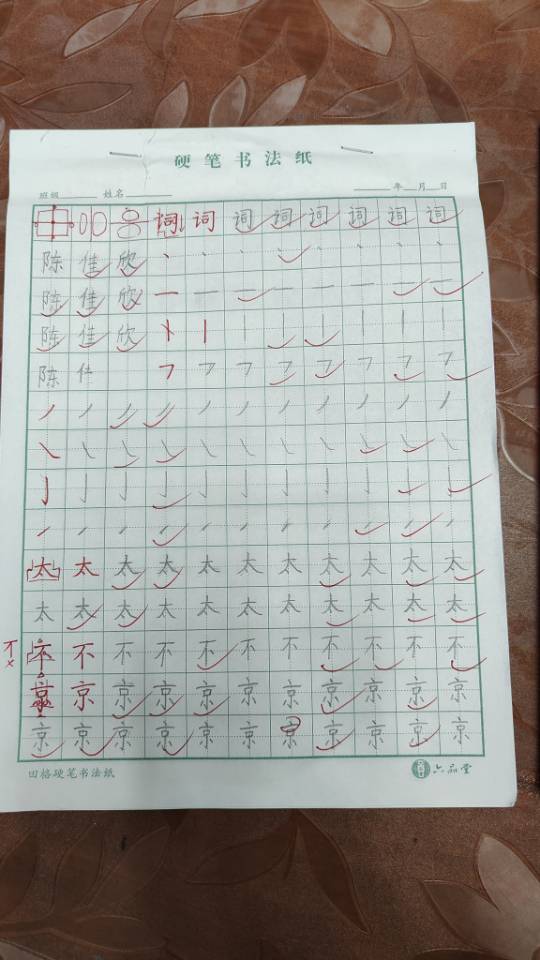 硬笔书法纸
班级 姓名 年 月 日
词 词 词 词 词 词 词 词
陈 佳 欣 丶 丶 丶 丶 丶 丶 丶 丶
陈 佳 欣 一 一 一 一 一 一 一 一
陈 佳 欣 丨 丨 丨 丨 丨 丨 丨
陈 佳 ㇇ ㇇ ㇇ ㇇ ㇇ ㇇ ㇇ ㇇
丿 丿 丿 丿 丿 丿 丿 丿 丿 丿 丿
㇏ ㇏ ㇏ ㇏ ㇏ ㇏ ㇏ ㇏ ㇏ ㇏ ㇏
亅 亅 亅 亅 亅 亅 亅 亅 亅 亅 亅
㇀ ㇀ ㇀ ㇀ ㇀ ㇀ ㇀ ㇀ ㇀ ㇀ ㇀
太 太 太 太 太 太 太 太 太 太 太
太 太 太 太 太 太 太 太 太 太 太
不 不 不 不 不 不 不 不 不 不 不 不
京 京 京 京 京 京 京 京 京 京 京
京 京 京 京 京 京 京 京 京 京 京
田格硬笔书法纸 六品堂